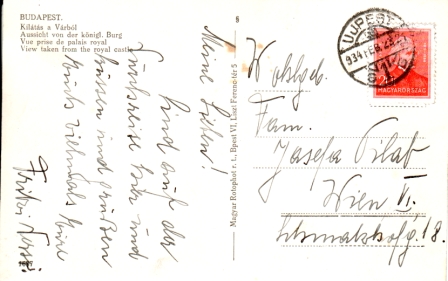 BUDAPEST.
Kilátás a Várból
Aussicht von der königl. Burg
Vue prise de palais royal
View taken from the royal castle
8
Meine Lieben!
Sind auf der
hier und
küssen und grüßen
Euch vielmals Eure
Magyar Rotophot r. t., Bpest VI, Liszt Ferenc-tér 5
UJPEST
934 FEB
MAGYARORSZÁG
Fam.
Josefa Pilat
Wien VI.
18.